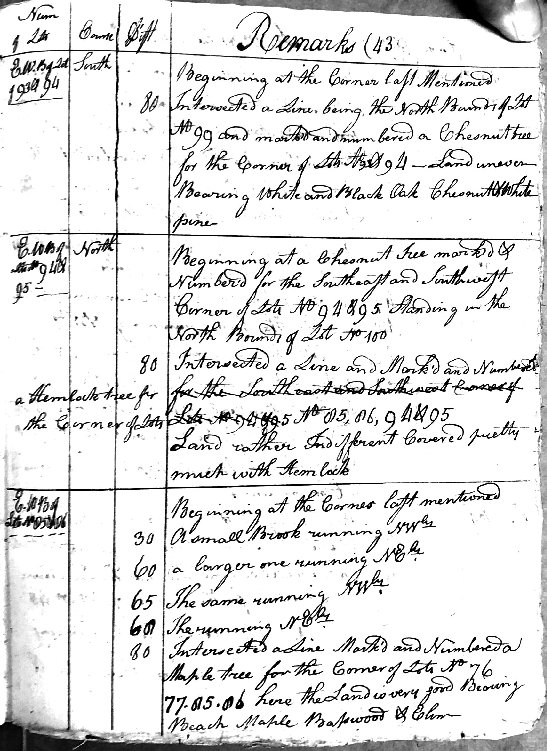 Num
of Lots Course Dist. Remarks (43
E.W.B of Lot South
93 & 94
Beginning at the Corner last Mentioned
80 Intersected a Line, being the North Bounds of Lot
No 99 and marked and numbered a Chesnut tree
for the Corner of Lots No 93 & 94 – Land uneven
Bearing White and Black Oak Chesnut & White
pine
E.W.B of North
94 &
95
Beginning at a Chesnut Tree mark'd &
Number'd for the Southeast and Southwest
Corner of Lots No 94 & 95 Standing in the
North Bounds of Lot No 100
80 Intersected a Line and Mark'd and Numbered
a Hemlock tree for for the Southeast and Southwest Corner of
the Corner of Lots Lots No 94 & 95 No 85, 86, 94 & 95
Land rather Indifferent Covered pretty
much with Hemlock
E.W.B of
Lots No 85 & 86
Beginning at the Corner last mentioned
30 A small Brook running NWly
60 a larger one running NEly
65 The same running NWly
68 The running NEly
80 Intersected a Line Mark'd and Numbered a
Maple tree for the Corner of Lots No 76
77. 85. 86 here the Land is very good Bearing
Beach Maple Basswood & Elm